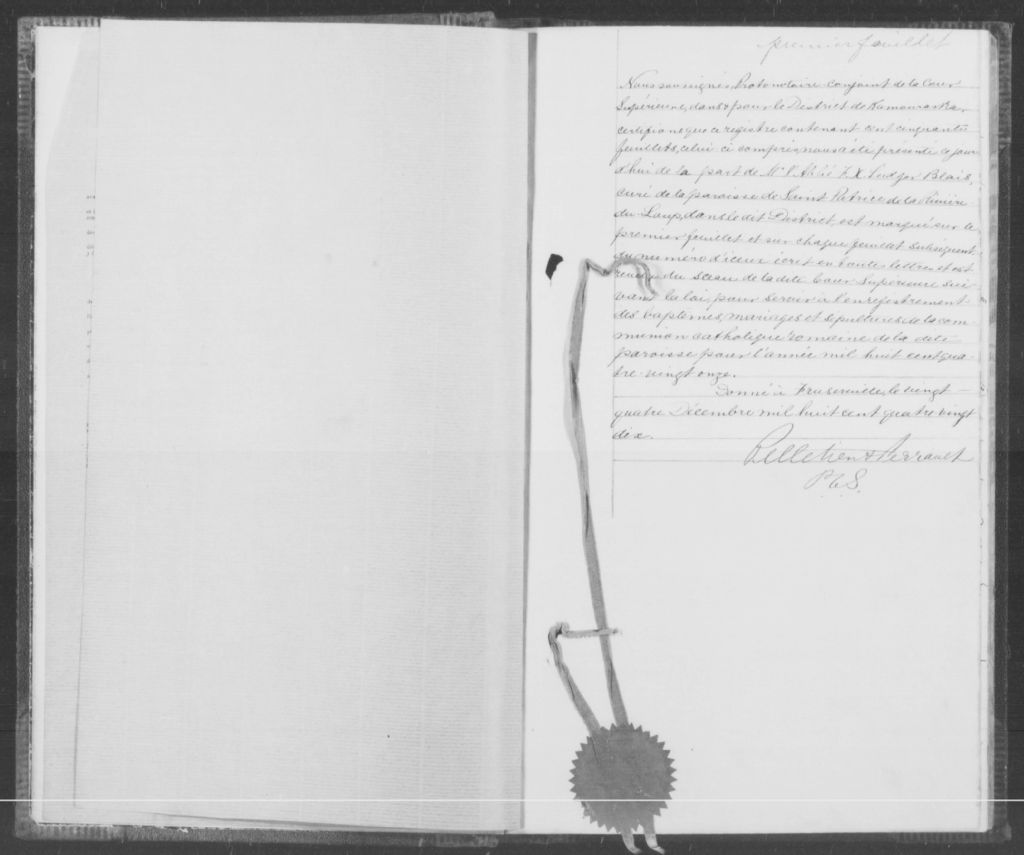 premier feuillet
Nous soussignés, Protonotaire conjoint de la Cour
Supérieure, dans & pour le District de Kamouraska,
certifions que ce registre contenant cent cinquante
feuillets, celui-ci compris nous a été présenté ce jour
d'hui de la part de Mr l'Abbé F. X. Ludger Blais,
curé de la paroisse de Saint Patrice de la Rivière
du Loup, dans le dit District, est marqué sur le
premier feuillet et sur chaque feuillet subséquent
du numéro d'iceux écrit en toute lettres et est
revêtu du sceau de la dite Cour Supérieure sui-
vant la loi, pour servir à l'enregistrement
des baptêmes, mariages et sépultures de la com-
munion catholique romaine de la dite
paroisse pour l'année mil huit cent qua-
tre-vingt onze.
Donné à Fraserville, le vingt
quatre Décembre mil huit cent quatre vingt
dix.
Pelletier & Perrault
P.C.S.